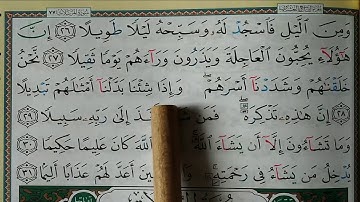 وَمِنَ ٱلَّيْلِ فَٱسْجُدْ لَهُۥ وَسَبِّحْهُ لَيْلًا طَوِيلًا ٢٦ إِنَّ
هَٰٓؤُلَآءِ يُحِبُّونَ ٱلْعَاجِلَةَ وَيَذَرُونَ وَرَآءَهُمْ يَوْمًا ثَقِيلًا ٢٧ نَّحْنُ
خَلَقْنَٰهُمْ وَشَدَدْنَآ أَسْرَهُمْ ۖ وَإِذَا شِئْنَا بَدَّلْنَآ أَمْثَٰلَهُمْ تَبْدِيلًا
٢٨ إِنَّ هَٰذِهِۦ تَذْكِرَةٌ ۖ فَمَن إِلَىٰ رَبِّهِۦ سَبِيلًا ٢٩
وَمَا تَشَآءُونَ إِلَّآ أَن يَشَآءَ ٱللَّهُ ۚ كَانَ عَلِيمًا حَكِيمًا ٣٠
يُدْخِلُ مَن يَشَآءُ فِى رَحْمَتِهِۦ ۚ أَعَدَّ لَهُمْ عَذَابًا أَلِيمًۢا ٣١